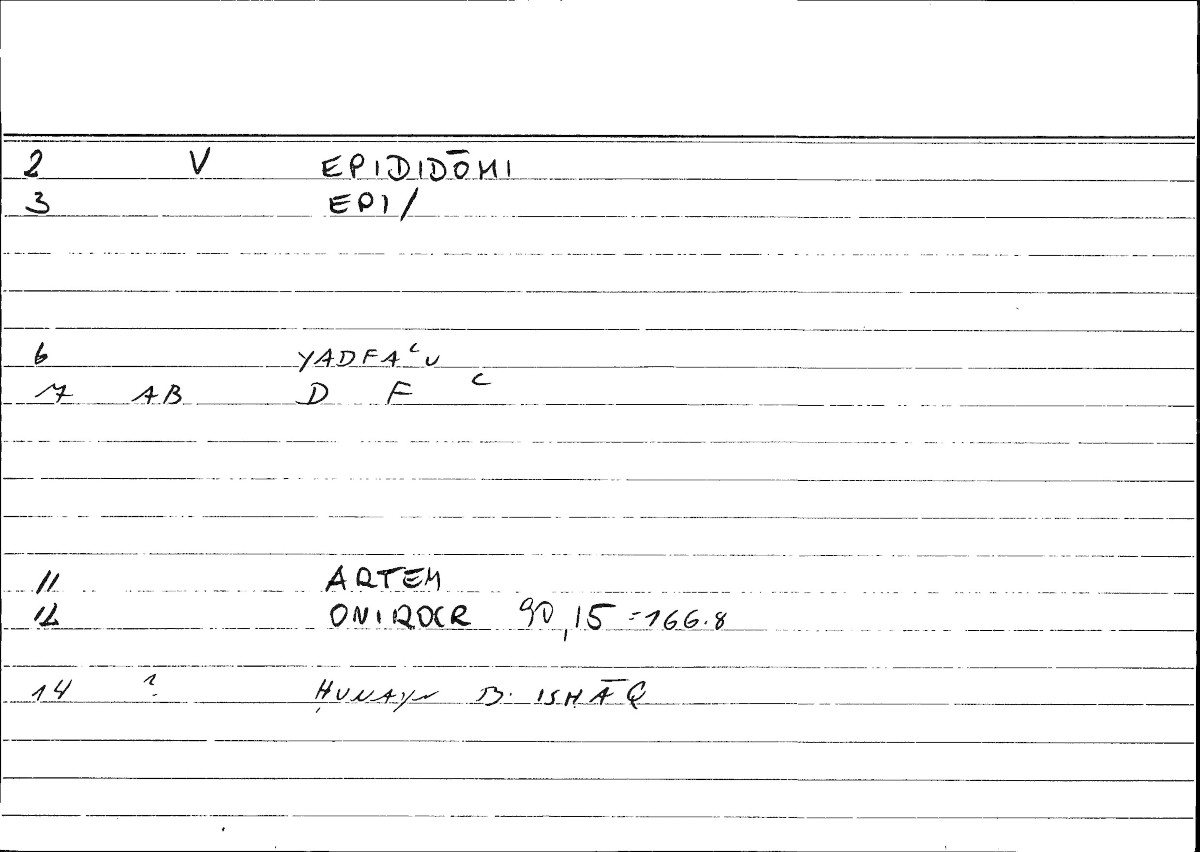 2 V EPIDIDŌMI
3 EPI/
6 YADFAʿU
7 AB D F ʿ
11 ARTEM
12 ONIROCR 90,15 =166.8
14 ? ḤUNAYN B. ISḤĀQ